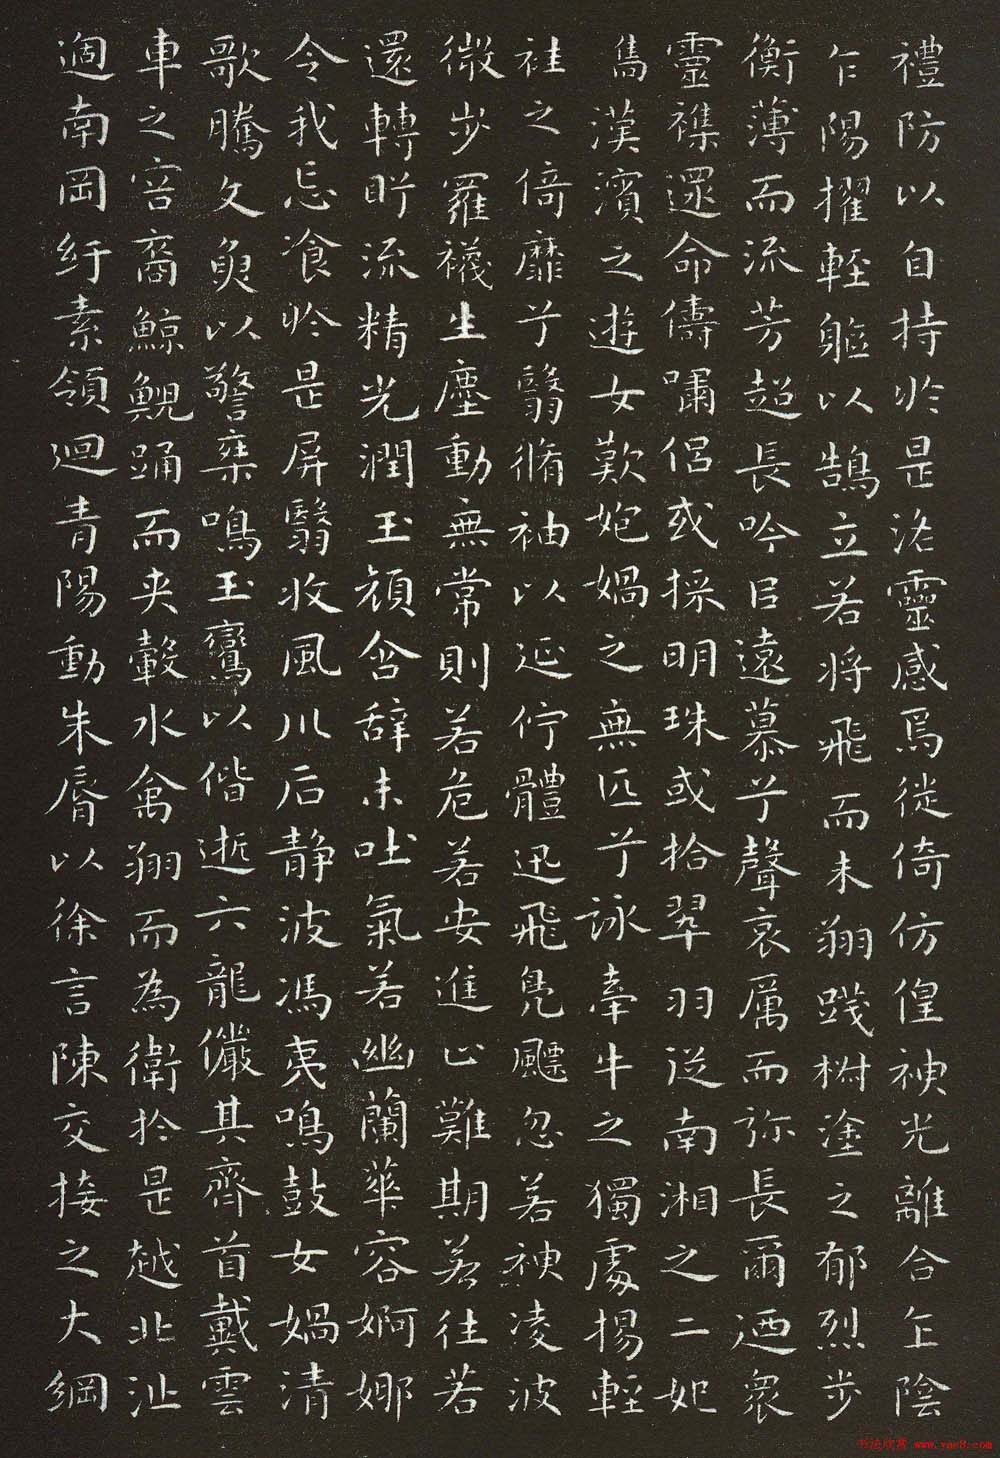 禮防以自持於是洛靈感焉徙倚仿偟神光離合乍陰
乍陽擢輕軀以鵠立若將飛而未翔踐椒塗之郁烈步
衡薄而流芳超長吟以遠慕兮聲哀厲而弥長爾迺衆
靈襍還命儔嘯侶或採明珠或拾翠羽從南湘之二妃
攜漢濱之遊女歎匏媧之無匹兮詠牽牛之獨處揚輕
袿之倚靡兮翳脩袖以延佇體迅飛鳧飄忽若神凌波
微步羅襪生塵動無常則若危若安進止難期若往若
還轉眄流精光潤玉顏含辞未吐氣若幽蘭華容婀娜
令我忘飡於是屏翳收風川后静波馮夷鳴鼓女媧清
歌騰文魚以警乗鳴玉鸞以偕逝六龍儼其齊首戴雲
車之容裔鯨鯢踊而夾轂水禽翔而為衛於是越北沚
過南岡紆素領迴青陽動朱脣以徐言陳交接之大綱
书法欣赏 www.yac8.com